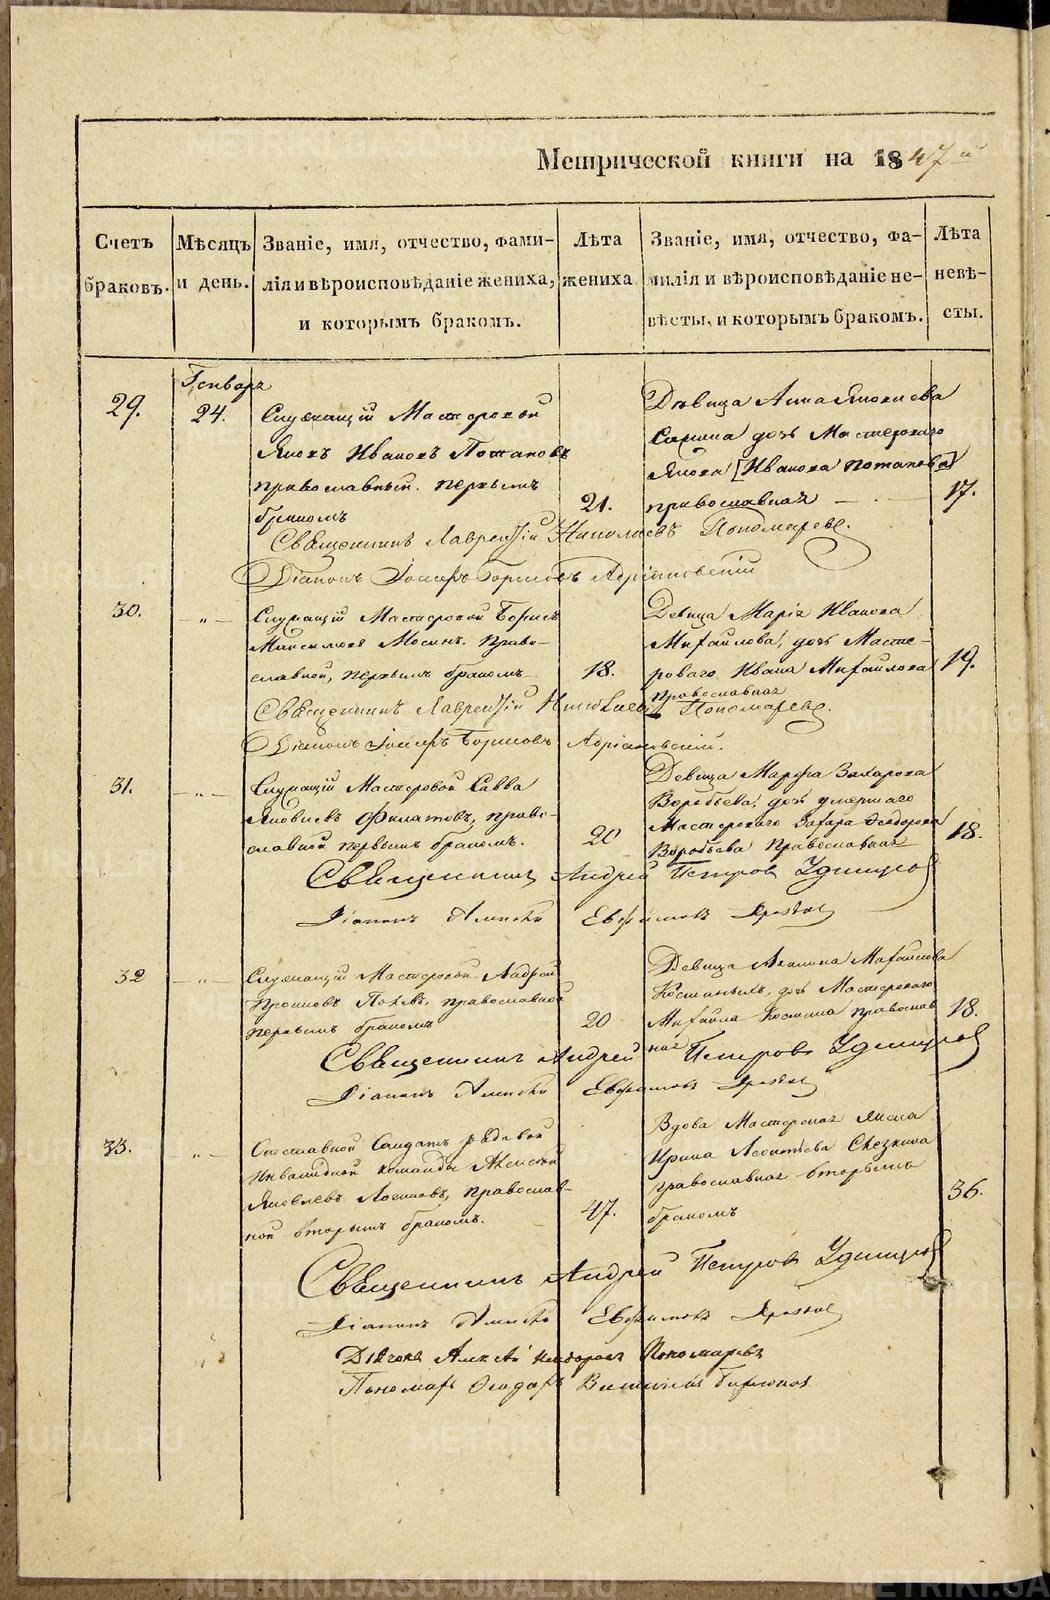 Метрической книги на 1847й
Счетъ браковъ.
Мѣсяцъ и день.
Званіе, имя, отчество, фами-
лія и вѣроисповѣданіе жениха,
и которымъ бракомъ.
Лѣта жениха
Званіе, имя, отчество, фа-
милія и вѣроисповѣданіе не-
вѣсты, и которымъ бракомъ.
Лѣта невѣ-
сты.
Генварь
29.
24.
Служащій Мастеровой
Яковъ Ивановъ Потаповъ
православный. первымъ
бракомъ
21.
Дѣвица Анна Яковлева
дочь Мастероваго
Якова [Иванова Потапова]
православная
17.
Священникъ Лаврентій Николаевъ Пономаревъ.
Діаконъ Іосифъ Борисовъ Адріановскій
30.
Служащій Мастеровой Борисъ
Максимовъ Мосинъ. Право-
славной, первымъ бракомъ
18.
Девица Марія Иванова
Михайлова, дочь Масте-
роваго Ивана Михайлова
православная
19.
Священникъ Лаврентій Николаевъ Пономаревъ.
Діаконъ Іосифъ Борисовъ Адріановскій.
31.
Служащій Мастеровой Савва
Яковлевъ Филатовъ, право-
славной первымъ бракомъ.
20
Девица Марфа Захарова
Воробьева, дочь умершаго
Мастероваго Захара Ѳеодорова
Воробьева Православная
18.
Священникъ Андрей Петровъ Удинцовъ
Діаконъ Алексѣй Евфимовъ
32
Служащій Мастеровой Андрей
православной
первымъ бракомъ
20
Девица Акилина Михайлова
дочь Мастероваго
Михайла Костина православ
ная
18.
Священникъ Андрей Петровъ Удинцовъ
Діаконъ Алексѣй Евфимовъ
33.
Отставной Салдатъ рядовой
Инвалидной команды Алексѣй
Яковлевъ Логиновъ, православ-
ной вторымъ бракомъ.
47.
Вдова Мастерская жена
Ирина Леонтьева
православная вторымъ
бракомъ
36.
Священникъ Андрей Петровъ Удинцовъ
Діаконъ Алексѣй Евфимовъ
Дьячокъ Алексѣй Пономаревъ
Пономарь Ѳеодоръ
METRIKI.GASO-URAL.RU